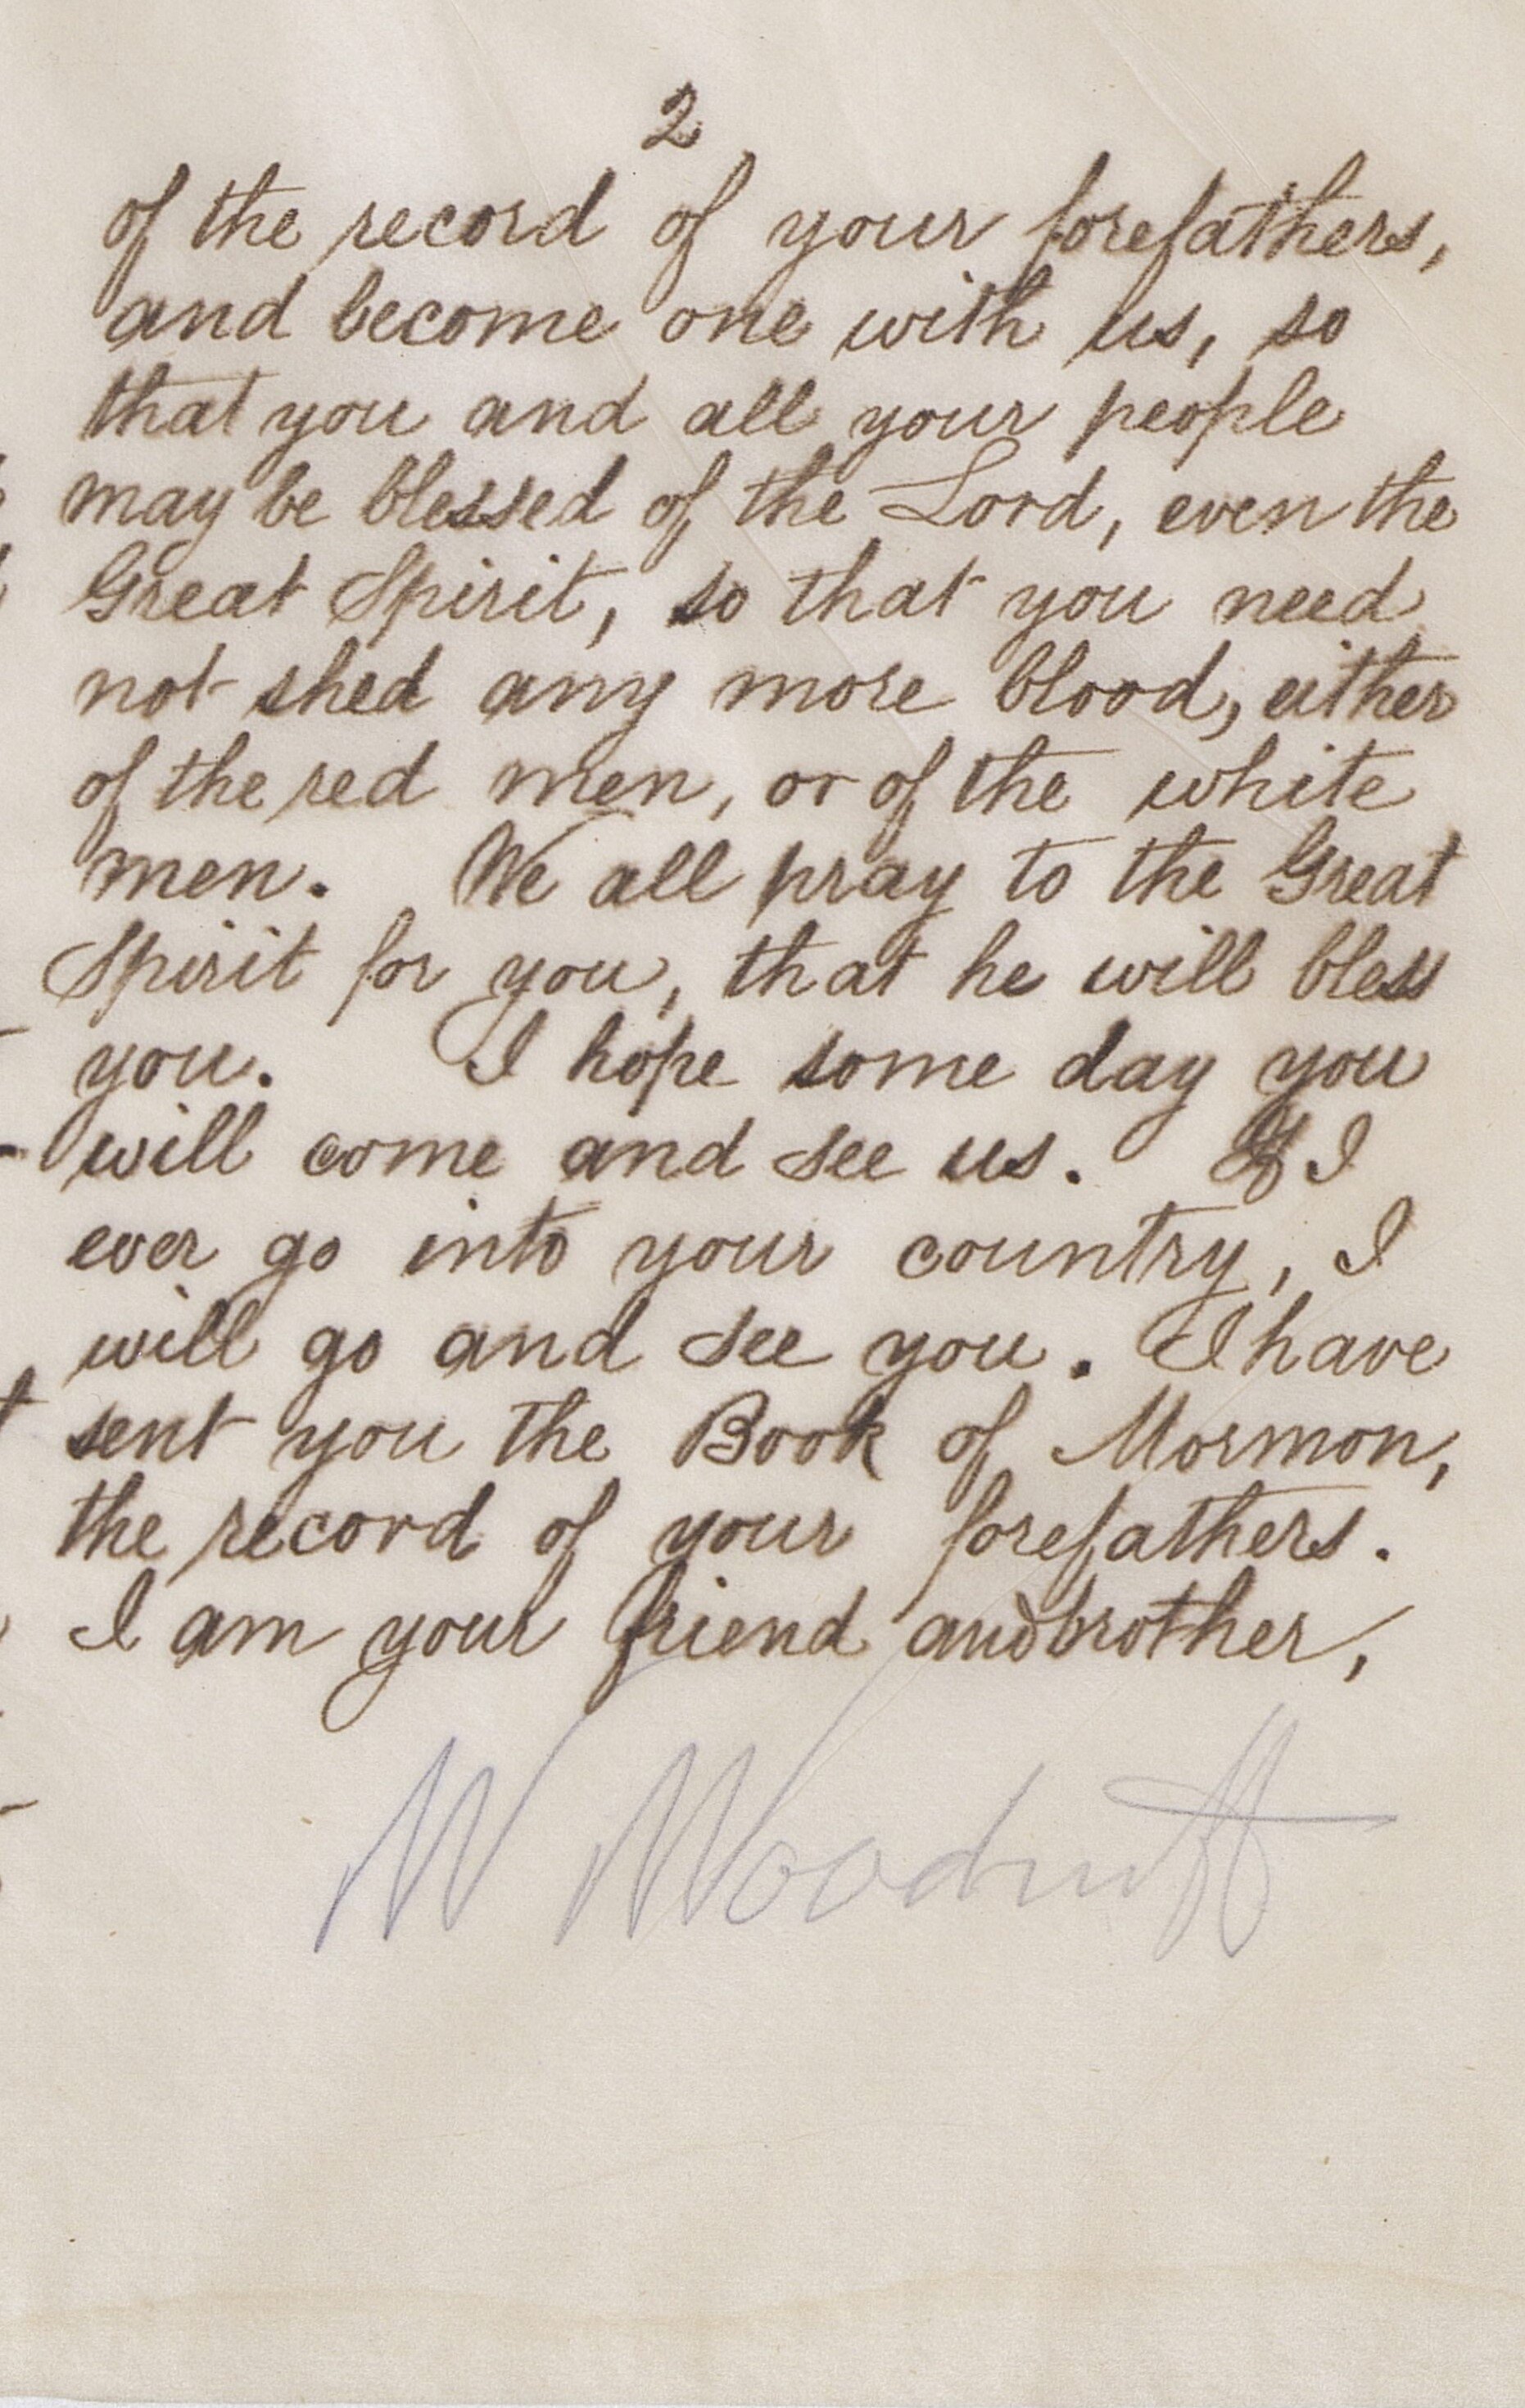 2
of the record of your forefathers,
and become one with us, so
that you and all your people
may be blessed of the Lord, even the
Great Spirit, so that you need
not shed any more blood, either
of the red men, or of the white
men. We all pray to the Great
Spirit for you, that he will bless
you. I hope some day you
will come and see us. If I
ever go into your country, I
will go and see you. I have
sent you the Book of Mormon,
the record of your forefathers.
I am your friend and brother,
W Woodruff